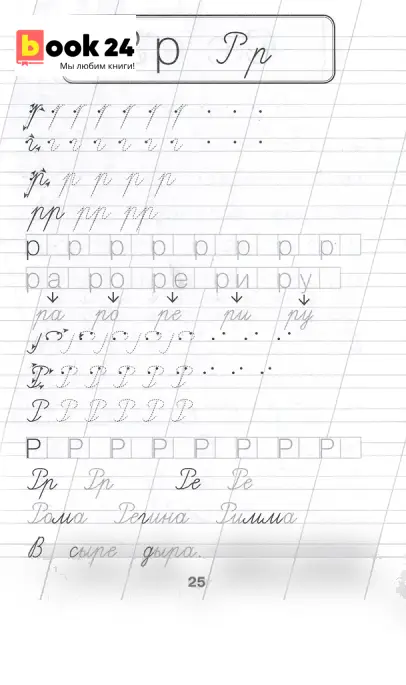 book 24 р Рр
Мы любим книги!
р р р р р
рр рр рр
р р р р р р р р
ра ро ре ри ру
ра ро ре ри ру
Р Р Р Р Р Р
Р Р Р Р Р Р
Р Р Р Р Р Р Р Р
Рр Рр Ре Ре
Рома Регина Римма
В сыре дыра.
25